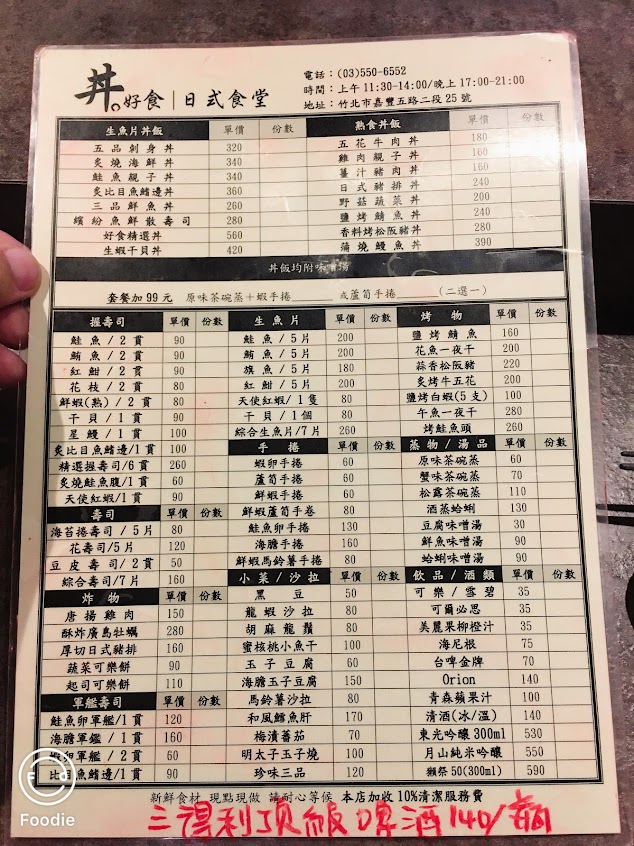 丼。好食 | 日式食堂
電話：(03)550-6552
時間：上午 11:30-14:00/晚上 17:00-21:00
地址：竹北市嘉豐五路二段 25 號
生魚片丼飯 單價 份數
五品刺身丼 320
炙燒海鮮丼 340
鮭魚親子丼 340
炙比目魚鰭邊丼 360
三品鮮魚丼 260
繽紛魚鮮散壽司 280
好食精選丼 560
生蝦干貝丼 420
熟食丼飯 單價 份數
五花牛肉丼 180
雞肉親子丼 160
薑汁豬肉丼 160
日式豬排丼 240
野菇蔬菜丼 200
鹽烤鯖魚丼 240
香料烤松阪豬丼 280
蒲燒鰻魚丼 390
丼飯均附味噌湯
套餐加 99 元 原味茶碗蒸＋蝦手捲______ 或蘆筍手捲______(二選一)
握壽司 單價 份數
鮭魚/2貫 90
鮪魚/2貫 90
紅魽/2貫 90
花枝/2貫 80
鮮蝦(熟)/2貫 80
干貝/1貫 90
星鰻/1貫 100
炙比目魚鰭邊/1貫 100
精選握壽司/6貫 260
炙燒鮭魚腹/1貫 60
天使紅蝦/1貫 90
壽司 單價 份數
海苔捲壽司/5片 80
花壽司/5片 120
豆皮壽司/2貫 50
綜合壽司/7片 160
炸物 單價 份數
唐揚雞肉 150
酥炸廣島牡蠣 280
厚切日式豬排 160
蔬菜可樂餅 90
起司可樂餅 110
軍艦壽司 單價 份數
鮭魚卵軍艦/1貫 120
海膽軍艦/1貫 160
蝦卵軍艦/2貫 60
比目魚鰭邊/1貫 90
生魚片 單價 份數
鮭魚/5片 200
鮪魚/5片 200
旗魚/5片 180
紅魽/5片 200
天使紅蝦/1隻 80
干貝/1個 80
綜合生魚片/7片 260
手捲 單價 份數
蝦卵手捲 60
蘆筍手捲 60
鮮蝦手捲 60
鮮蝦蘆筍手卷 80
鮭魚卵手捲 130
海膽手捲 160
鮮蝦馬鈴薯手捲 80
小菜/沙拉 單價 份數
黑豆 50
龍蝦沙拉 80
胡麻龍鬚 80
蜜核桃小魚干 100
玉子豆腐 60
海膽玉子豆腐 150
馬鈴薯沙拉 80
和風鱈魚肝 170
梅漬蕃茄 70
明太子玉子燒 100
珍味三品 120
烤物 單價 份數
鹽烤鯖魚 160
花魚一夜干 200
蒜香松阪豬 220
炙烤牛五花 200
鹽烤白蝦(5支) 100
午魚一夜干 280
烤鮭魚頭 260
蒸物/湯品 單價 份數
原味茶碗蒸 60
蟹味茶碗蒸 70
松露茶碗蒸 110
酒蒸蛤蜊 130
豆腐味噌湯 30
鮮魚味噌湯 90
蛤蜊味噌湯 90
飲品/酒類 單價 份數
可樂/雪碧 35
可爾必思 35
美麗果柳橙汁 35
海尼根 75
台啤金牌 70
Orion 140
青森蘋果汁 100
清酒(冰/溫) 140
東光吟釀 300ml 530
月山純米吟釀 550
獺祭 50(300ml) 590
新鮮食材 現點現做 請耐心等候 本店加收 10%清潔服務費
三得利頂級啤酒140/瓶
Foodie